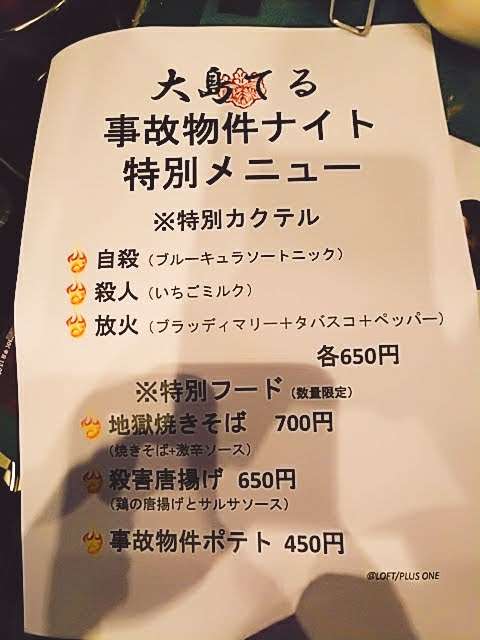 大島てる
事故物件ナイト
特別メニュー
※特別カクテル
自殺（ブルーキュラソートニック）
殺人（いちごミルク）
放火（ブラッディマリー＋タバスコ＋ペッパー）
各650円
※特別フード（数量限定）
地獄焼きそば 700円
(焼きそば+激辛ソース)
殺害唐揚げ 650円
（鶏の唐揚げとサルサソース）
事故物件ポテト 450円
@LOFT/PLUS ONE